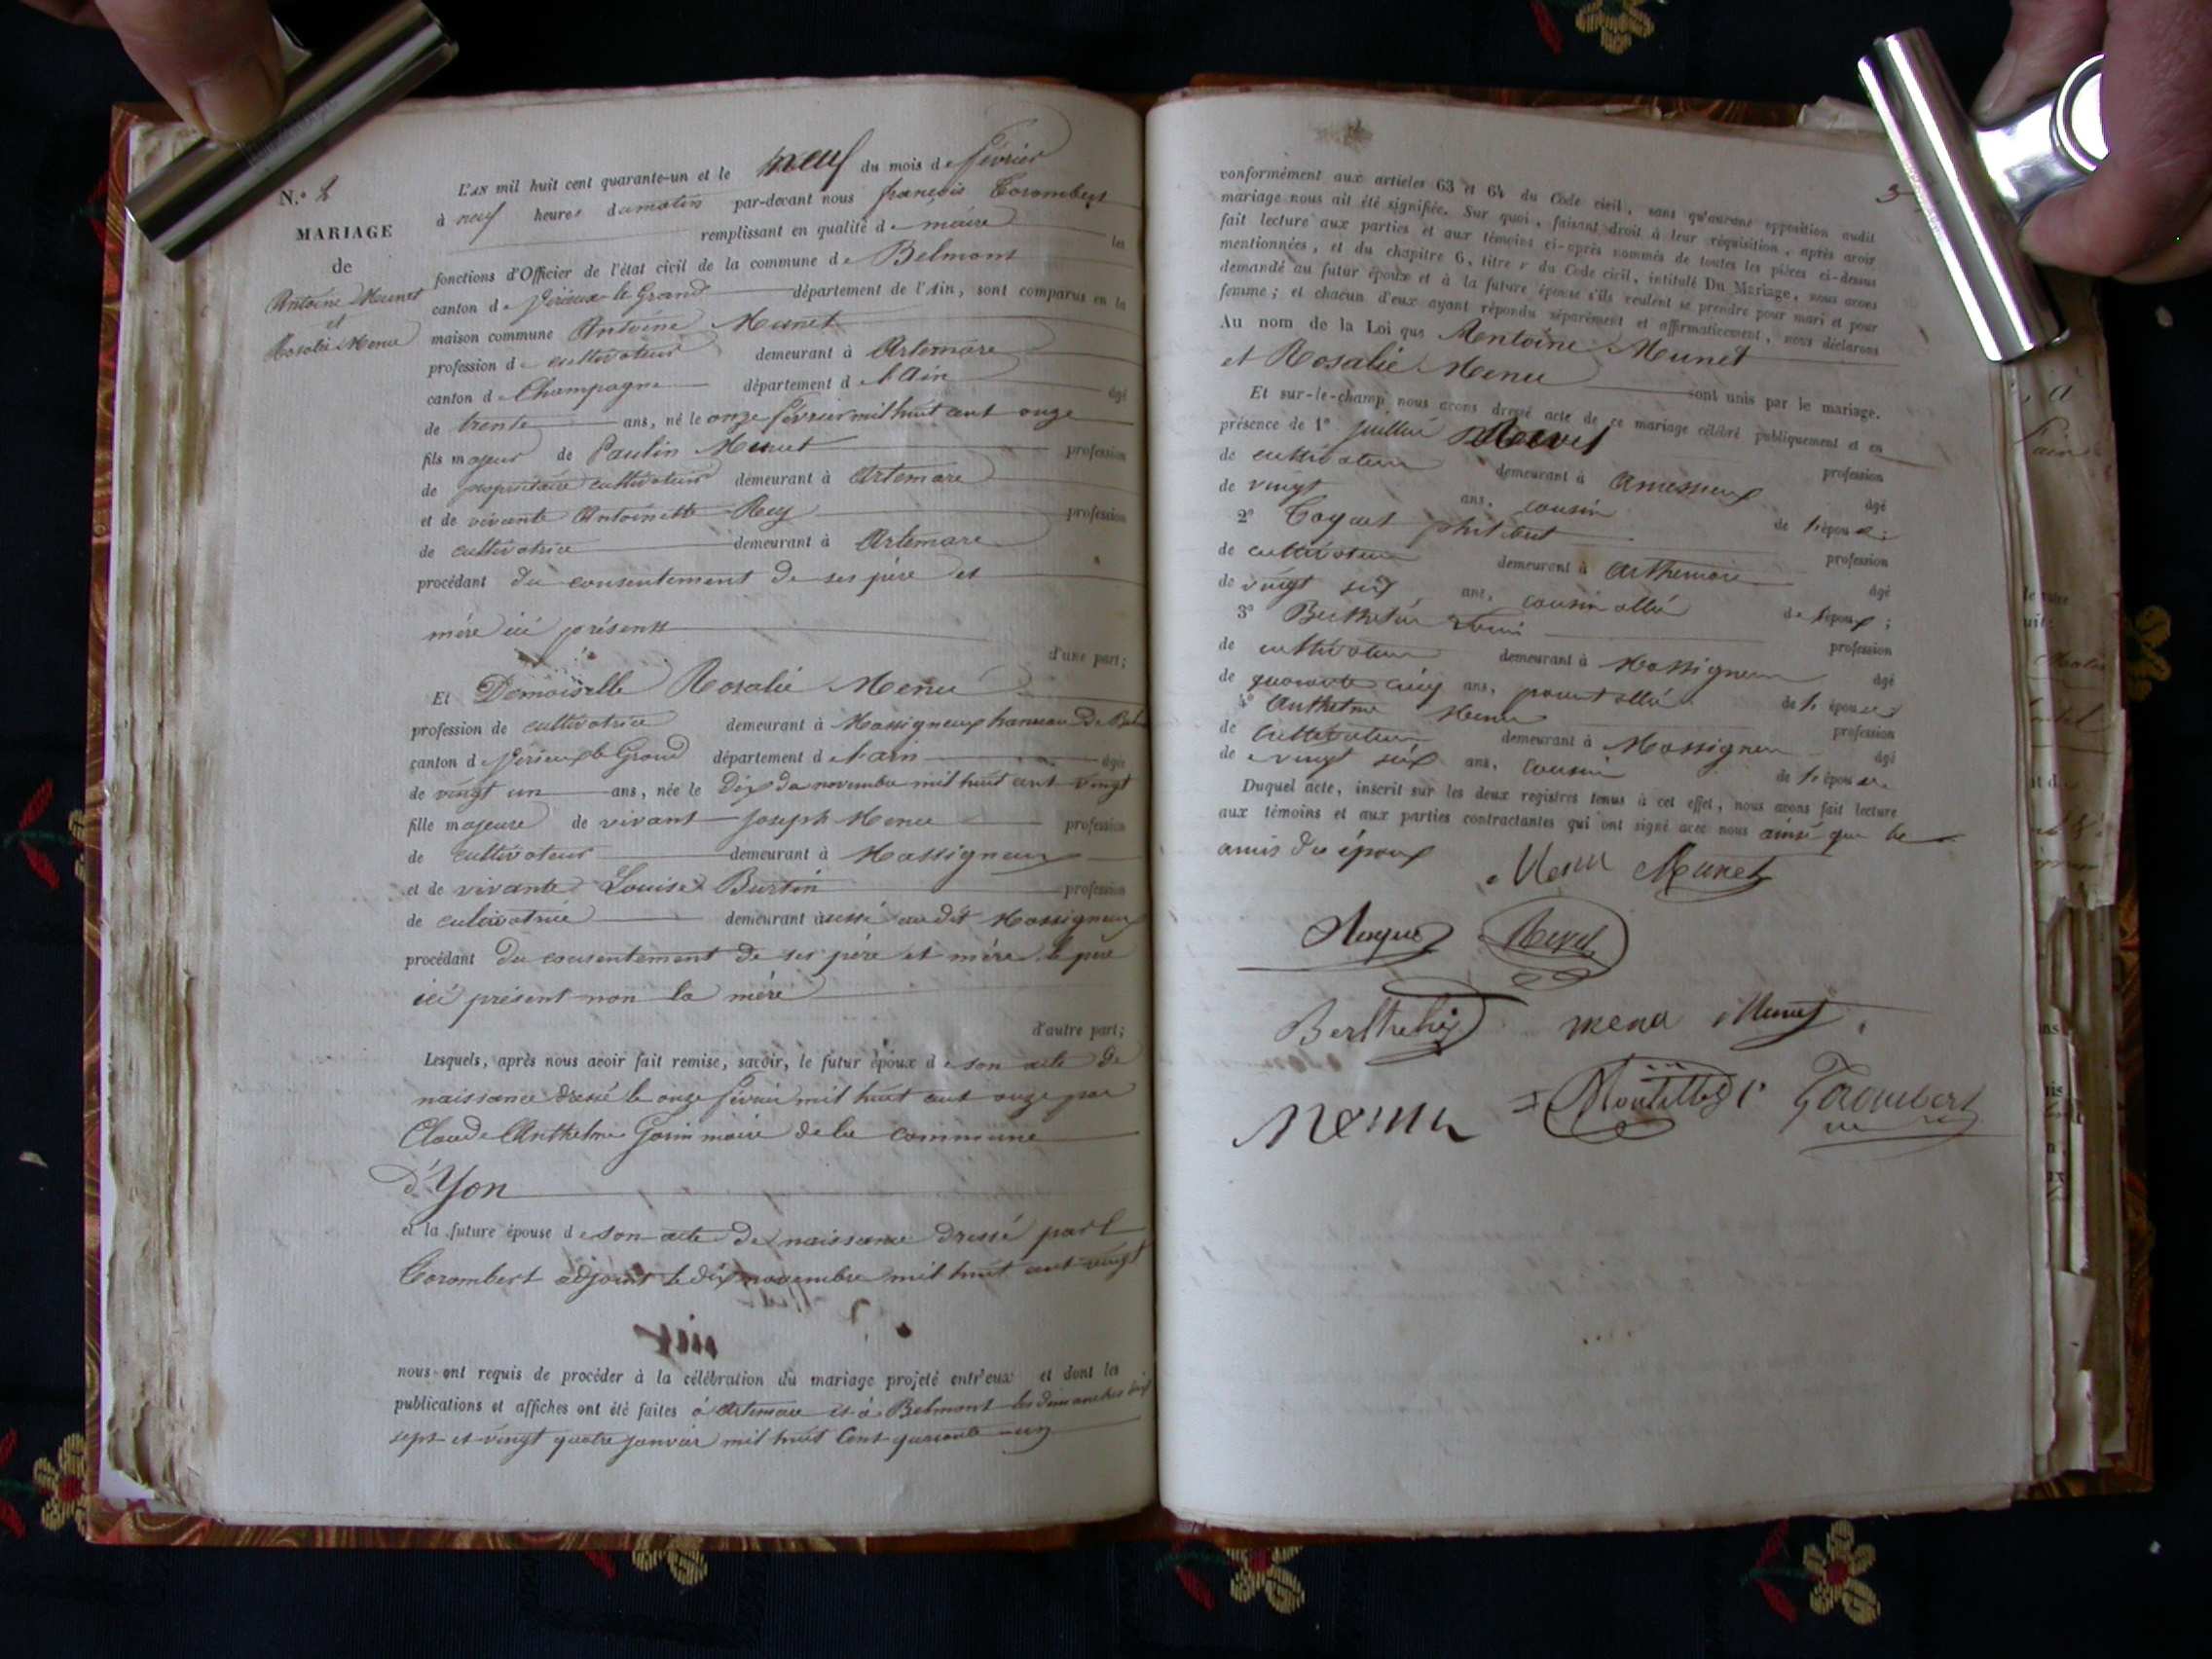 N.° 2
MARIAGE
de
Antoine Munet
et
Rosalie Menu
L'AN mil huit cent quarante-un et le neuf du mois de février
à neuf heures du matin par-devant nous françois Corombert
remplissant en qualité de maire les
fonctions d'Officier de l'état civil de la commune de Belmont
canton de Virieux le Grand département de l'Ain, sont comparus en la
maison commune Antoine Munet
profession de cultivateur demeurant à Artemare
canton d Champagne département d l'Ain âgé
de trente ans, né le onze février mil huit cent onze
fils majeur de Paulin Munet profession
de propriétaire cultivateur demeurant à Artemare
et de vivante Antoinette Rey profession
de cultivatrice demeurant à Artemare
procédant du consentement de ses père et
mère ici présents
d'une part;
Et Demoiselle Rosalie Menu
profession de cultivatrice demeurant à Massigneux hameau de
canton d Virieux le Grand département d l'ain âgée
de vingt un ans, née le dix de novembre mil huit cent vingt
fille majeure de vivant Joseph Menu profession
de cultivateur demeurant à Massigneux
et de vivante Louise Burtin profession
de culivatrice demeurant aussi au dit Massigneux
procédant du consentement de ses père et mère le père
ici présent non la mère
d'autre part;
Lesquels, après nous avoir fait remise, savoir, le futur époux de son acte de
naissance dressé le onze février mil huit cent onze par
Claude Anthelme Gorin maire de la commune
d'Yon
et la future épouse de son acte de naissance dressé par
Corombert adjoint le dix novembre mil huit cent vingt
nous ont requis de procéder à la célébration du mariage projeté entr'eux et dont les
publications et affiches ont été faites à Artemare et à Belmont les dimanches dix
sept et vingt quatre janvier mil huit cent quarante un
3
conformément aux articles 63 et 64 du Code civil, sans qu'aucune opposition audit
mariage nous ait été signifiée. Sur quoi, faisant droit à leur réquisition, après avoir
fait lecture aux parties et aux témoins ci-après nommés de toutes les pièces ci-dessus
mentionnées, et du chapitre 6, titre v du Code civil, intitulé Du Mariage, nous avons
demandé au futur époux et à la future épouse s'ils veulent se prendre pour mari et pour
femme; et chacun d'eux ayant répondu séparément et affirmativement, nous déclarons
Au nom de la Loi que Antoine Munet
et Rosalie Menu sont unis par le mariage.
Et sur-le-champ nous avons dressé acte de ce mariage célébré publiquement et en
présence de 1° profession
de cultivateur demeurant à Ameyzieux âgé
de vingt ans, cousin de l'épou
2° philibert profession
de cultivateur demeurant à Arthemare âgé
de vingt six ans, cousin allié de l'époux;
3° Berthelier profession
de cultivateur demeurant à Massigneu âgé
de quarante cinq ans, parent allié de l'épouse
4° Anthelme Menu profession
de Cultivateur demeurant à Massigneu âgé
de vingt six ans, cousin de l'épouse.
Duquel acte, inscrit sur les deux registres tenus à cet effet, nous avons fait lecture
aux témoins et aux parties contractantes qui ont signé avec nous ainsi que les
amis des époux
Menu Munet
menu Munet
Menu Corombert